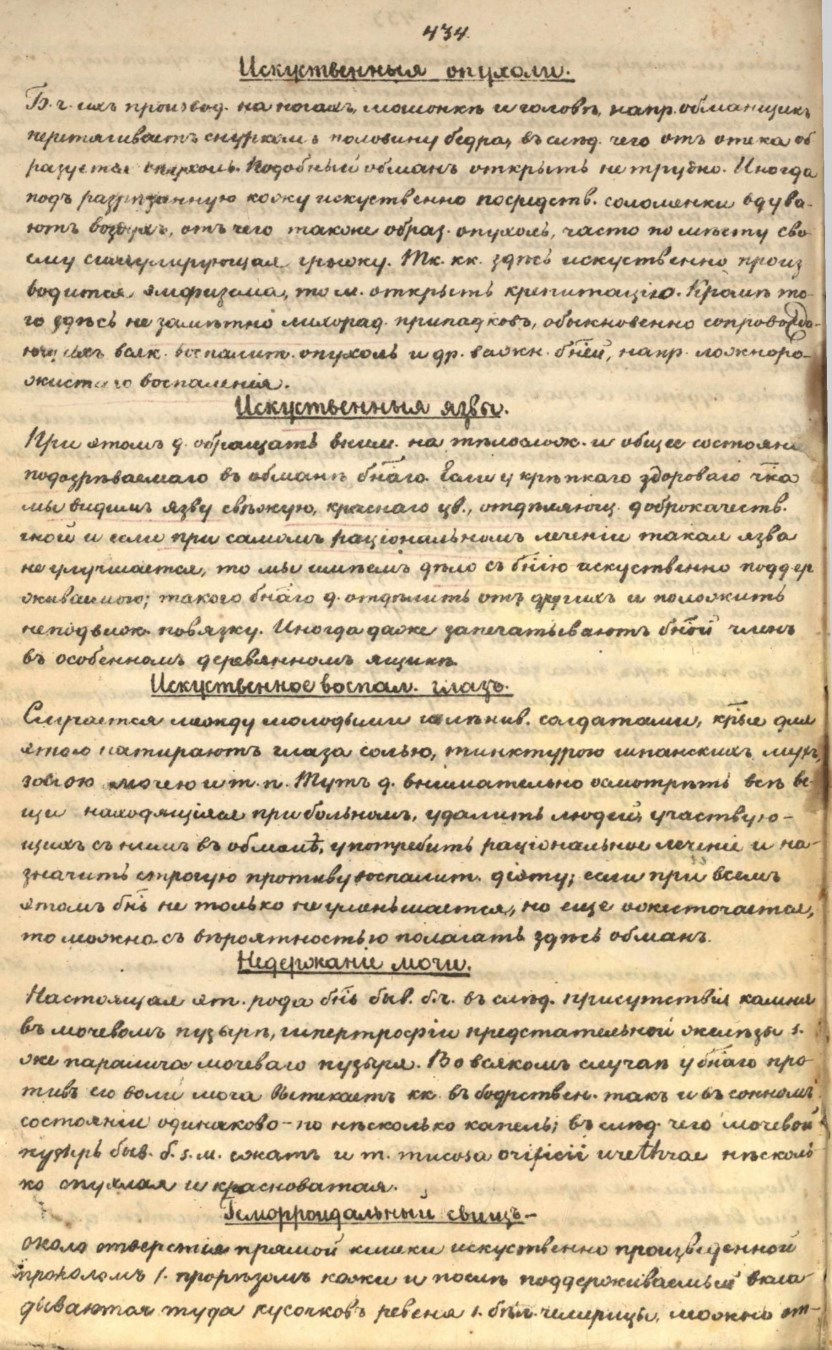 434
Искуственныя опухоли.
Б. ч. ихъ производ. на ногахъ, мошонкѣ и головѣ, напр. обманщикъ
перетягиваетъ снуркомъ половину бедра, въ слѣд. чего отъ отека об
разуется опухоль. Подобный обманъ открыть не трудно. Иногда
подъ разрѣзанную кожу искуственно посредств. соломенки вдува-
ютъ воздухъ, отъ чего также образ. опухоль, часто по мѣсту сво-
ему симулирующая грыжу. Тк. кк. здѣсь искуственно произ
водится эмфизема, то м. открыть крепитацію. Кромѣ то-
го здѣсь не замѣтно лихорад. припадковъ, обыкновенно сопровожда-
ющихъ всяк. воспалит. опухоль и др. важн. бней, напр. ложноро-
жистаго воспаленія.
Искуственныя язвы.
При этомъ д. обращать вним. на тѣлослож. и общее состояні
подозрѣваемаго въ обманѣ бнаго. Если у крѣпкаго здороваго чка
мы видимъ язву свѣжую, краснаго цв., отдѣляющ. доброкачеств.
гной и если при самомъ раціональномъ леченіи такая язва
не улучшается, то мы имѣемъ дѣло съ бнію искуственно поддер
живаемою; такого бнаго д. отдѣлить отъ другихъ и положить
неподвиж. повязку. Иногда даже запечатываютъ бной членъ
въ особенномъ деревянномъ ящикѣ.
Искуственное воспал. глазъ.
Случается между молодыми и лѣнив. солдатами, крые для
этого натираютъ глаза солью, тинктурою шпанскихъ мухъ,
золою мочею и т. п. Тутъ д. внимательно осмотрѣть всѣ ве-
щи находящіяся при больномъ, удалить людей, участвую-
щихъ съ нимъ въ обманѣ, употребить раціональное леченіе и на-
значить строгую противувоспалит. діэту; если при всемъ
этомъ бнь не только не уменьшается, но еще ожесточается,
то можно съ вѣроятностью полагать здѣсь обманъ.
Недержаніе мочи.
Настоящая эт. рода бнь быв. б. ч. въ слѣд. присутствія камня
въ мочевомъ пузырѣ, гипертрофіи предстательной железы s.
же паралича мочеваго пузыря. Во всякомъ случаѣ у бнаго про-
тивъ его воли моча вытекаетъ кк. въ бодрствен. такъ и въ сонномъ
состояніи одинаково - по нѣсколько капель; въ слѣд. чего мочевой
пузырь быв. б. s. м. сжатъ и т. mucosa orificii urethrae нѣсколь
ко опухлая и красноватая.
Гемморроидальный свищъ -
около отверстія прямой кишки искуственно произведенной
проколомъ s. прорѣзомъ кожи и послѣ поддерживаемый вкла
дываются туда кусочковъ ревеня s. бѣл. чемерицы, можно от-